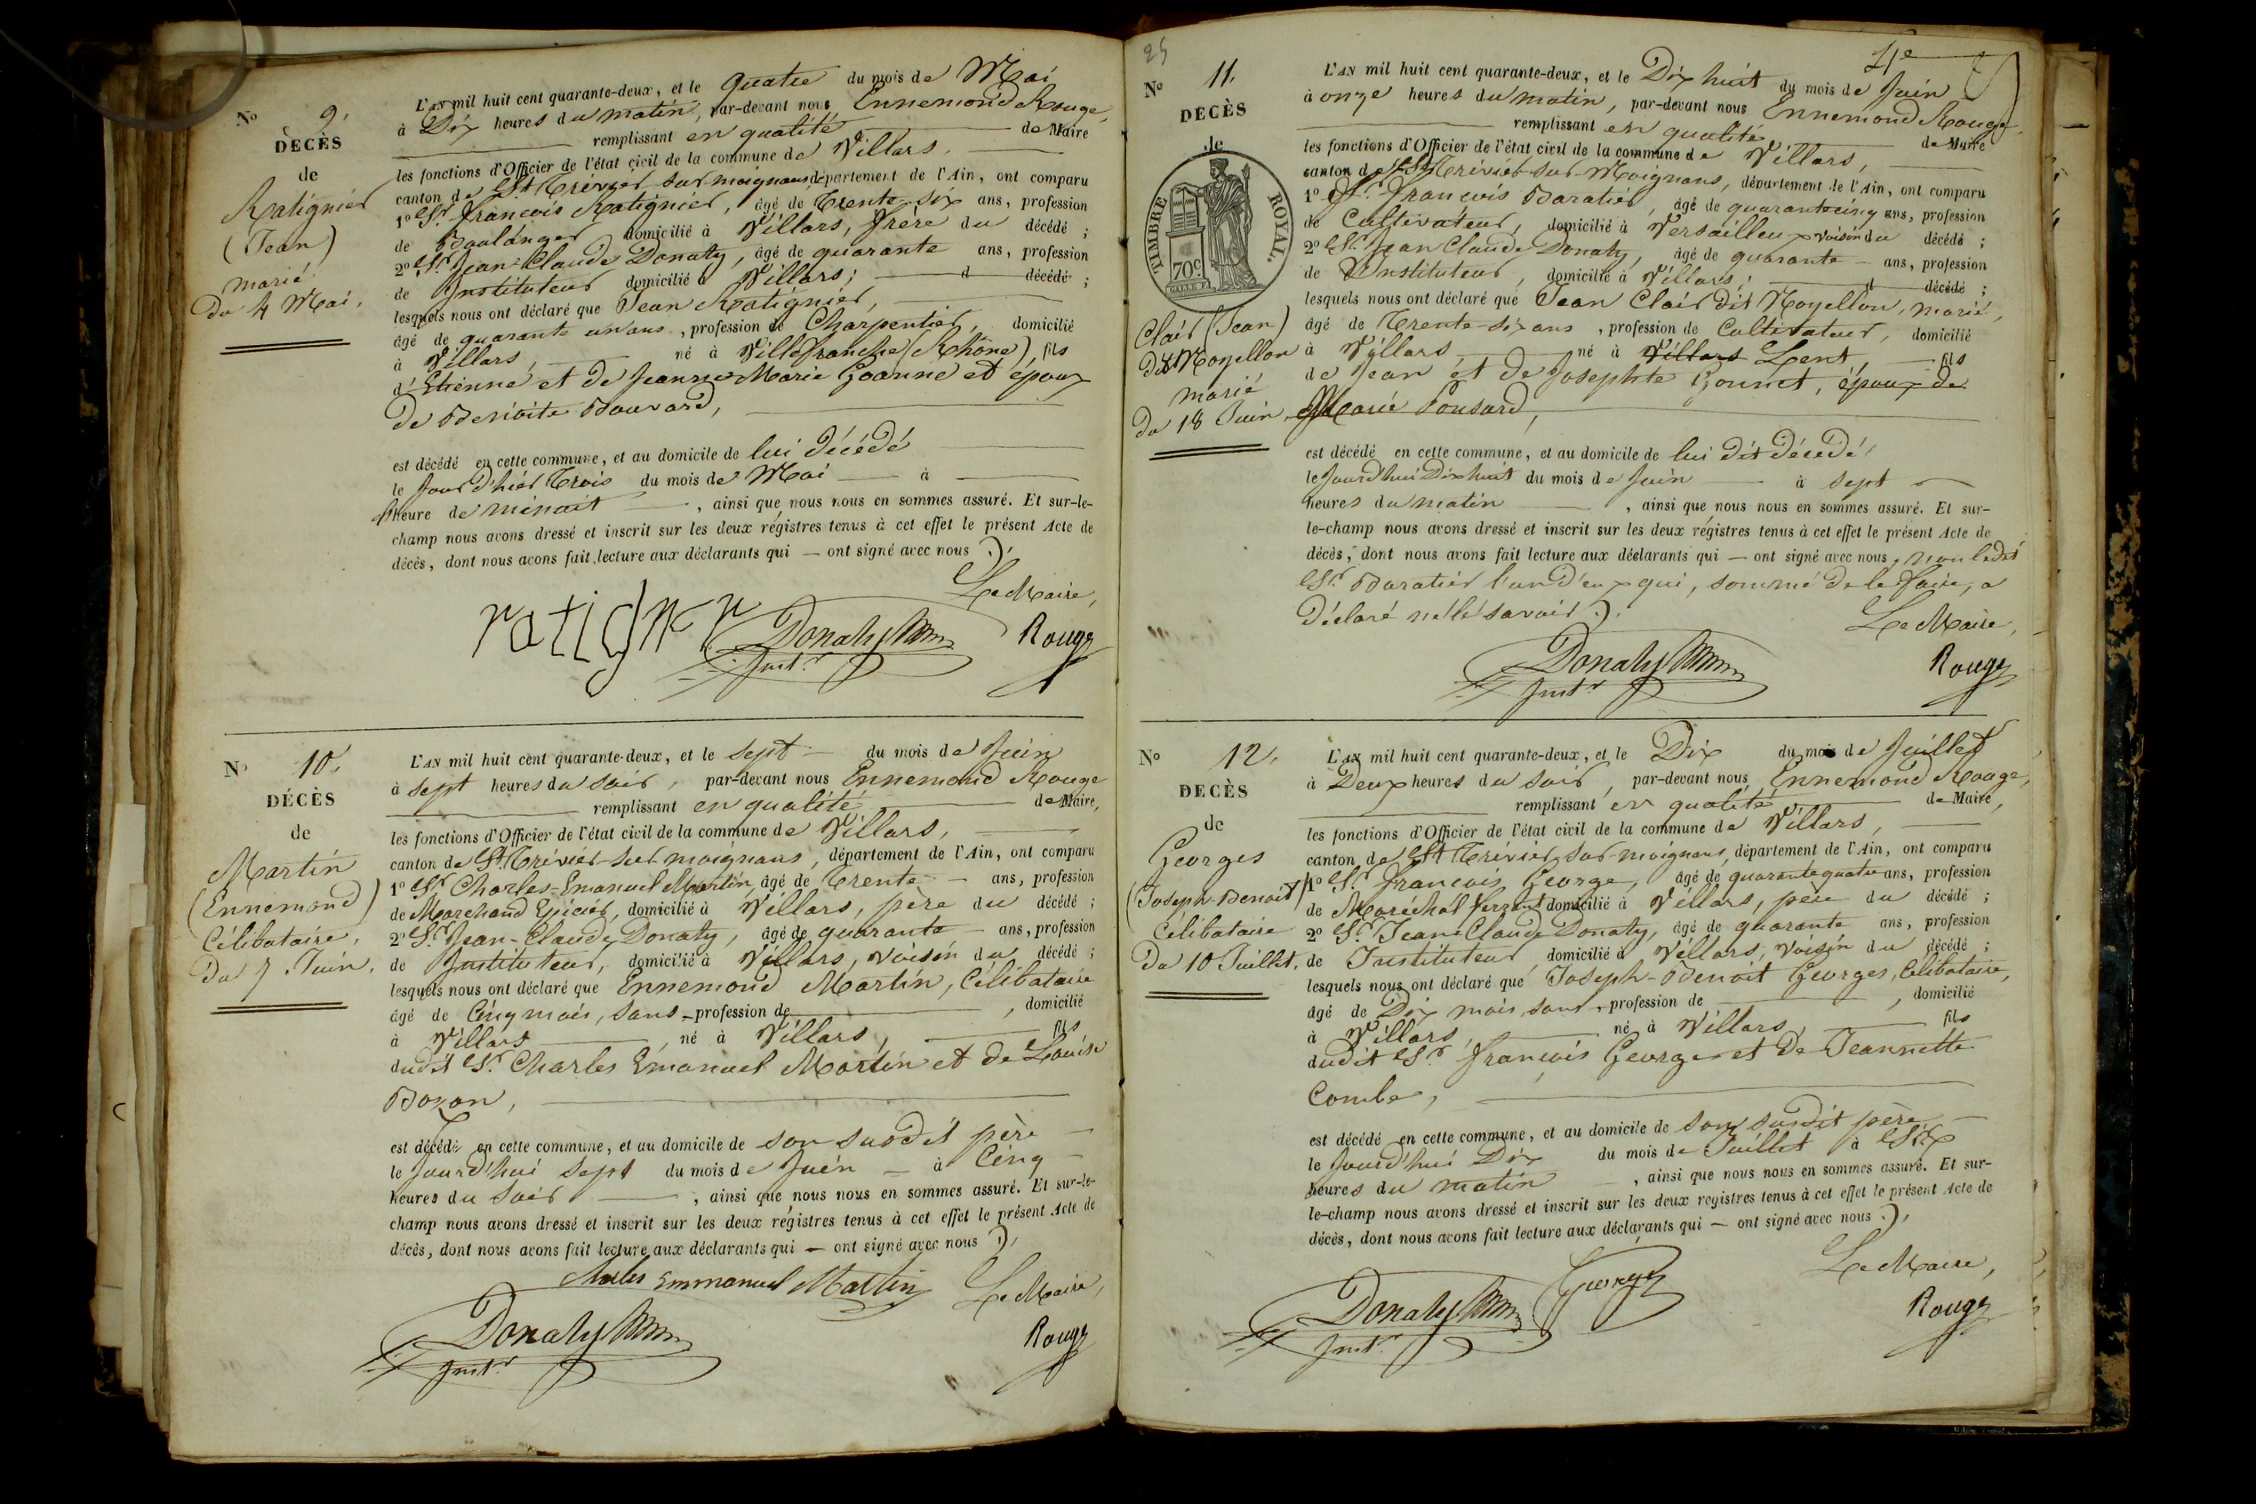 N° 9.
DÉCÈS
de
Ratignier
(Jean)
marié
Du 4 Mai.
L'AN mil huit cent quarante-deux, et le quatre du mois de Mai
à Dix heures du matin, par-devant nous Ennemond Rouge,
remplissant en qualité de Maire
les fonctions d'Officier de l'état civil de la commune de Villars,
canton de St Trivier-sur-moignans département de l'Ain, ont comparu
1° Sr. François Ratignier, âgé de Trente-six ans, profession
de Boulanger domicilié à Villars, frère du décédé ;
2° Sr. Jean-Claude Donaty, âgé de quarante ans, profession
de Instituteur domicilié à Villars; d décédé ;
lesquels nous ont déclaré que Jean Ratignier,
âgé de quarante un ans, profession de Charpentier, domicilié
à Villars, né à Villefranche (Rhône), fils
d'Etienne et de Jeanne Marie Goanne et époux
de Benoite Bouvard,
est décédé en cette commune, et au domicile de lui décédé
le Jour d'hier Trois du mois de Mai à
heure de minuit, ainsi que nous nous en sommes assuré. Et sur-le-
champ nous avons dressé et inscrit sur les deux régistres tenus à cet effet le présent Acte de
décès, dont nous avons fait lecture aux déclarants qui — ont signé avec nous.
Le Maire,
ratignr
Donaty
Instr.
Rouge
N° 10.
DÉCÈS
de
Martin
(Ennemond)
Célibataire,
Du 7 Juin.
L'AN mil huit cent quarante-deux, et le sept du mois de Juin
à sept heures du soir, par-devant nous Ennemond Rouge
remplissant en qualité de Maire,
les fonctions d'Officier de l'état civil de la commune de Villars,
canton de St. Trivier-sur moignans, département de l'Ain, ont comparu
1° Sr. Charles-Emanuel Martin, âgé de Trente ans, profession
de Marchand Epicier, domicilié à Villars, père du décédé ;
2° Sr. Jean-Claude Donaty, âgé de quarante ans, profession
de Instituteur, domicilié à Villars, voisin du décédé ;
lesquels nous ont déclaré que Ennemond Martin, Célibataire
âgé de Cinq mois, sans profession de, domicilié
à Villars, né à Villars, fils
dudit Sr. Charles Emanuel Martin et de Louise
Bozon,
est décédé en cette commune, et au domicile de son susdit père
le Jourd'hui sept du mois de Juin à Cinq
heures du soir, ainsi que nous nous en sommes assuré. Et sur-le-
champ nous avons dressé et inscrit sur les deux régistres tenus à cet effet le présent Acte de
décès, dont nous avons fait lecture aux déclarants qui — ont signé avec nous.
Charles Emmanuel Martin
Le Maire,
Donaty
Instr.
Rouge
25
4e
N° 11.
DÉCÈS
de
TIMBRE ROYAL.
70c
Clair (Jean)
dit Moyellon
marié
Du 18 Juin
L'AN mil huit cent quarante-deux, et le Dix huit du mois de Juin
à onze heures du matin, par-devant nous Ennemond Rouge,
remplissant en qualité de Maire
les fonctions d'Officier de l'état civil de la commune de Villars,
canton de St. Trivier-sur-Moignans, département de l'Ain, ont comparu
1° Sr. François Baratier, âgé de quarante cinq ans, profession
de Cultivateur, domicilié à Versailleux, voisin du décédé ;
2° Sr. Jean Claude Donaty, âgé de quarante ans, profession
de Instituteur, domicilié à Villars; d décédé ;
lesquels nous ont déclaré que Jean Clair dit Moyellon, marié,
âgé de Trente-six ans, profession de Cultivateur, domicilié
à Villars, né à Villars Lent, fils
de Jean et de Josephte Gonnet, époux de
Marie Ponsard,
est décédé en cette commune, et au domicile de lui dit décédé,
le Jourd'hui Dix huit du mois de Juin à sept
heures du matin, ainsi que nous nous en sommes assuré. Et sur-
le-champ nous avons dressé et inscrit sur les deux régistres tenus à cet effet le présent Acte de
décès, dont nous avons fait lecture aux déclarants qui — ont signé avec nous, non ledit
Sr. Baratier l'un d'eux qui, sommé de le faire, a
Déclaré ne le savoir.
Le Maire,
Donaty
Instr
Rouge
N° 12.
DÉCÈS
de
Georges
(Joseph-Benoit)
Célibataire
Du 10 Juillet.
L'AN mil huit cent quarante-deux, et le Dix du mois de Juillet
à Deux heures du soir, par-devant nous Ennemond Rouge,
remplissant en qualité de Maire,
les fonctions d'Officier de l'état civil de la commune de Villars,
canton de St Trivier-sur-moignans, département de l'Ain, ont comparu
1° Sr. François George, âgé de quarante quatre ans, profession
de Maréchal ferrant domicilié à Villars, père du décédé ;
2° Sr. Jean Claude Donaty, âgé de quarante ans, profession
de Instituteur domicilié à Villars, voisin du décédé ;
lesquels nous ont déclaré que Joseph-Benoit Georges, Célibataire,
âgé de Dix mois, sans profession de, domicilié
à Villars, né à Villars, fils
dudit Sr. François George et de Jeannette
Combe,
est décédé en cette commune, et au domicile de son susdit père,
le Jourd'hui Dix du mois de Juillet à Six
heures du matin, ainsi que nous nous en sommes assuré. Et sur-
le-champ nous avons dressé et inscrit sur les deux registres tenus à cet effet le présent Acte de
décès, dont nous avons fait lecture aux déclarants qui — ont signé avec nous.
Le Maire,
George
Donaty
Instr.
Rouge